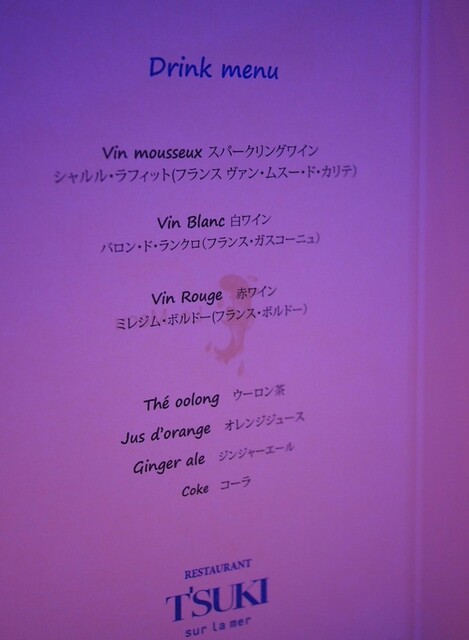 Drink menu
Vin mousseux スパークリングワイン
シャルル・ラフィット(フランス ヴァン・ムスー・ド・カリテ)
Vin Blanc 白ワイン
バロン・ド・ランクロ(フランス・ガスコーニュ)
Vin Rouge 赤ワイン
ミレジム・ボルドー(フランス・ボルドー)
Thé oolong ウーロン茶
Jus d'orange オレンジジュース
Ginger ale ジンジャーエール
Coke コーラ
RESTAURANT
T'SUKI
sur la mer